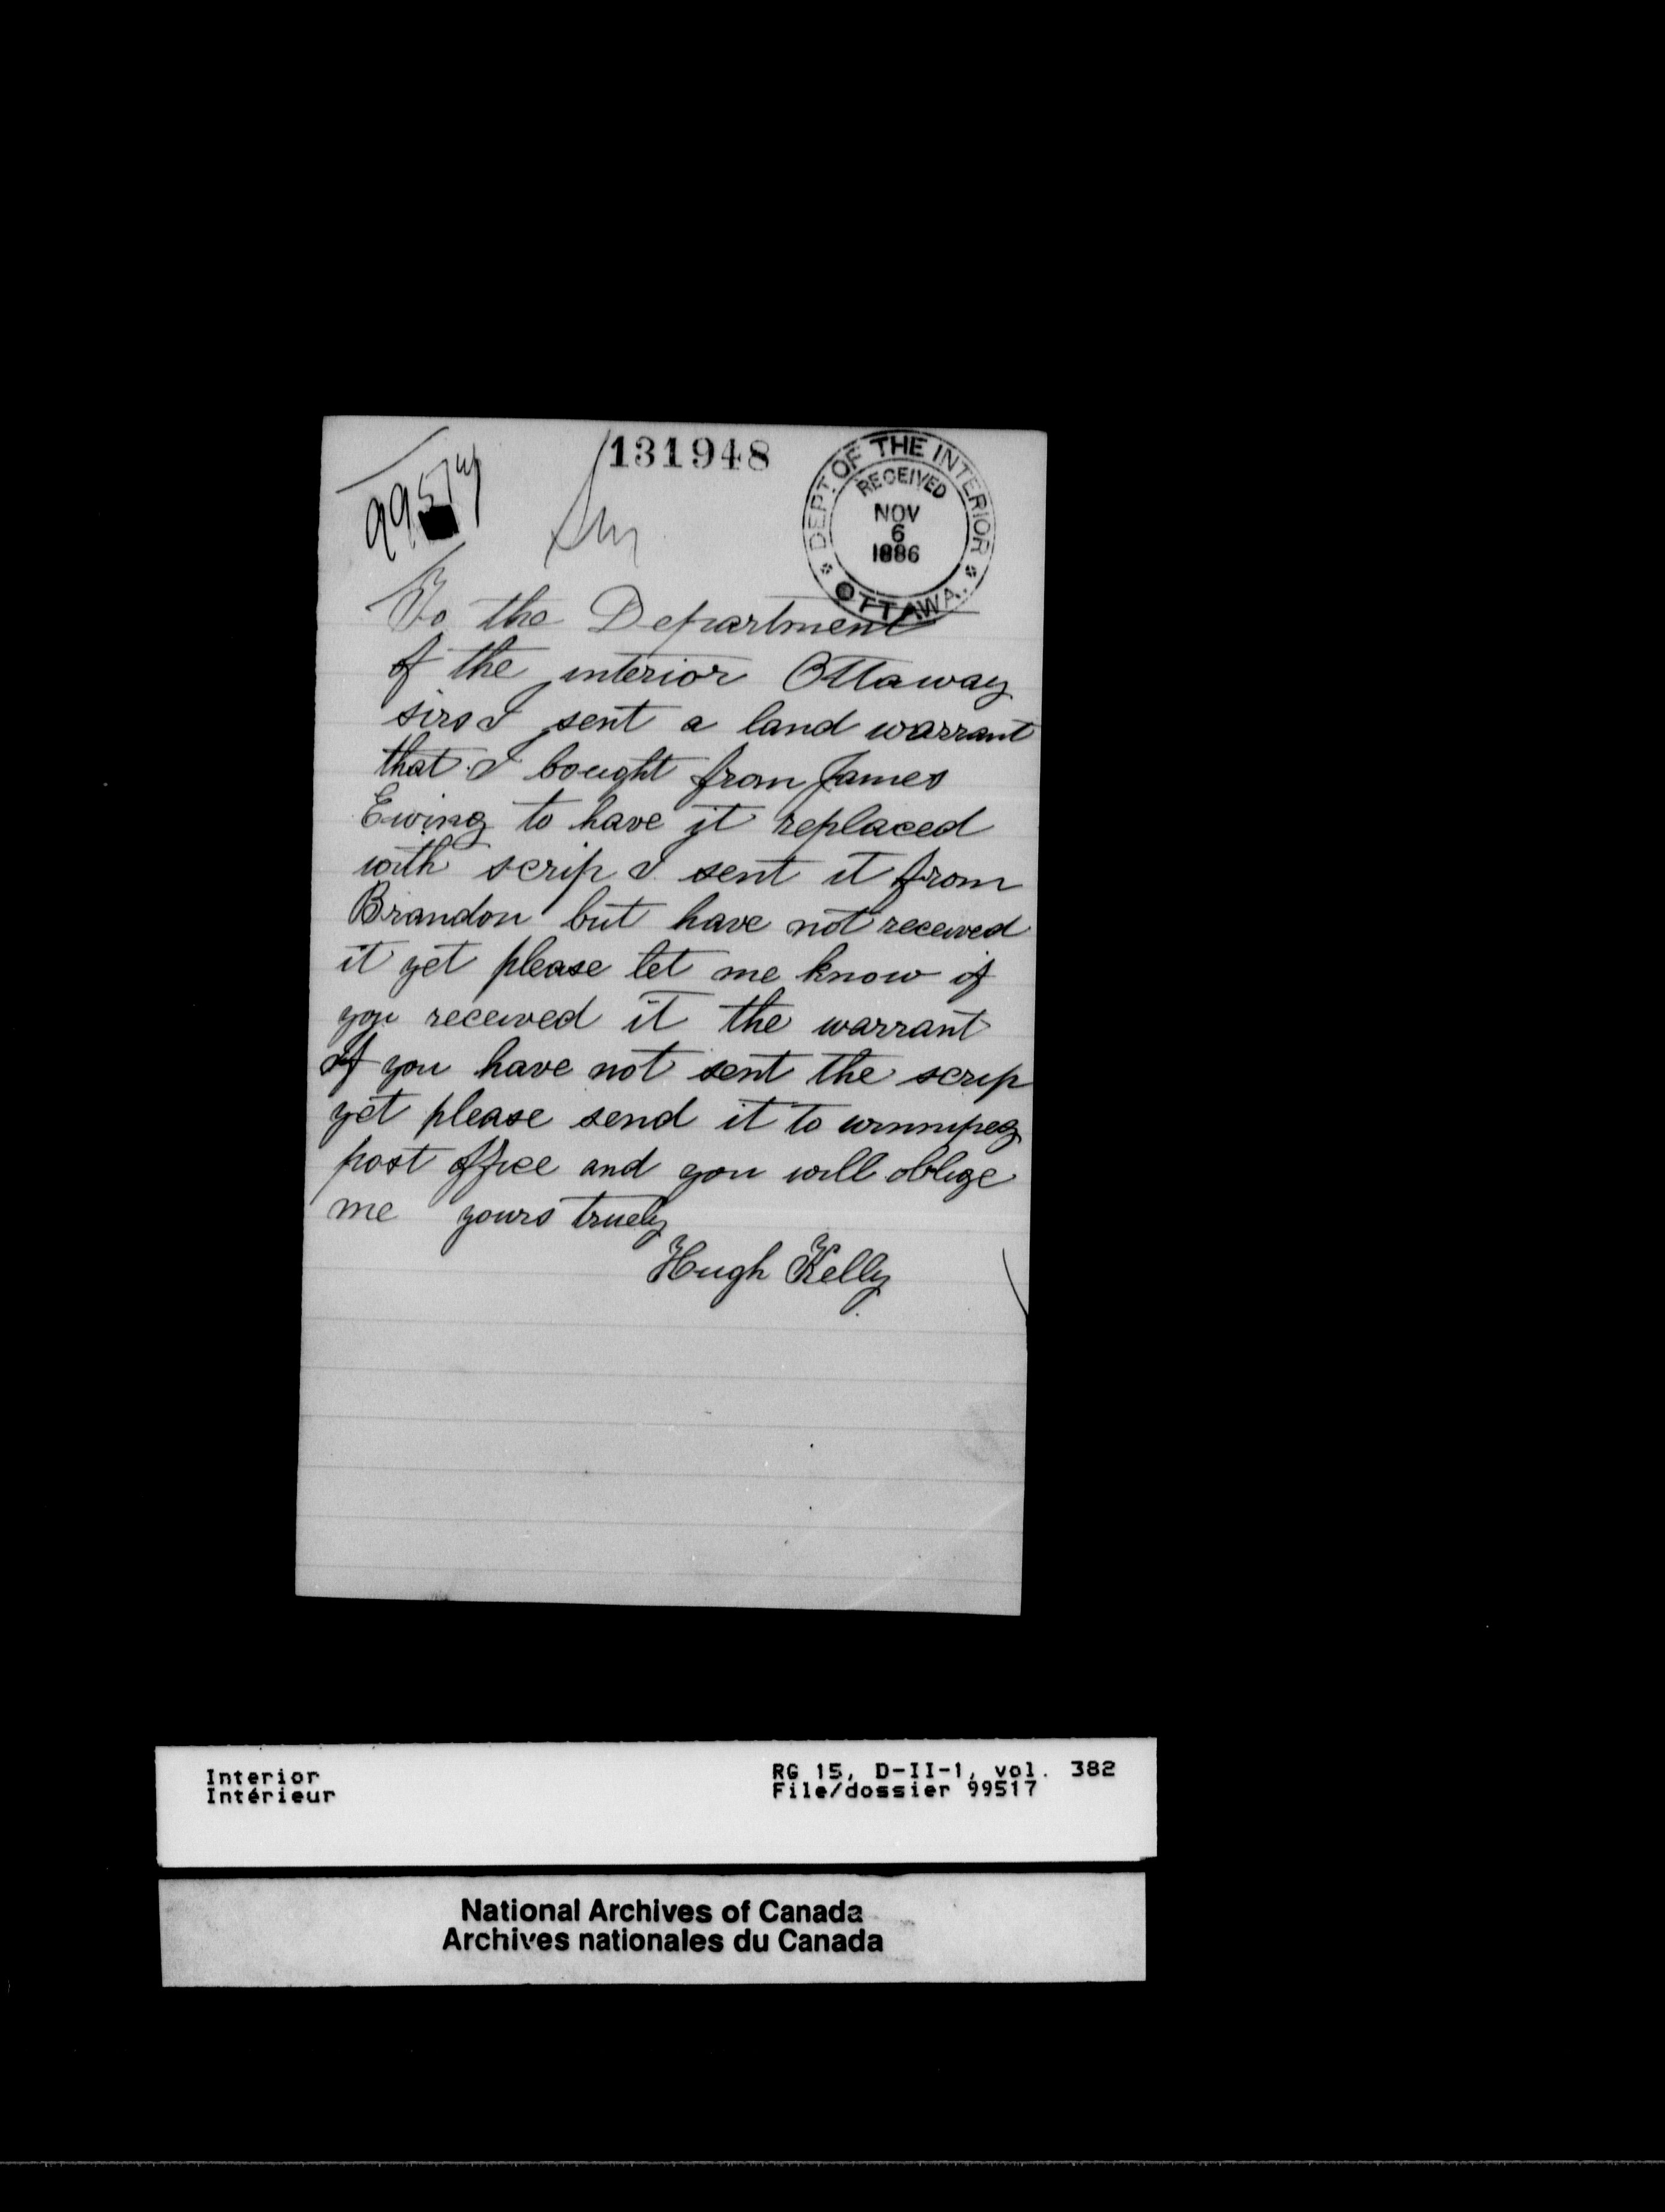 131948
DEPT. OF THE INTERIOR
RECEIVED
NOV
6
1886
OTTAWA.
To the Department
of the interior Ottaway
sirs I sent a land warrant
that I bought from James
Ewing to have it replaced
with scrip I sent it from
Brandon but have not received
it yet please let me know if
you received it the warrant
If you have not sent the scrip
yet please send it to winnipeg
post office and you will oblige
me yours truely
Hugh Kelly
Interior
Intérieur
RG 15, D-II-1, vol. 382
File/dossier 99517
National Archives of Canada
Archives nationales du Canada